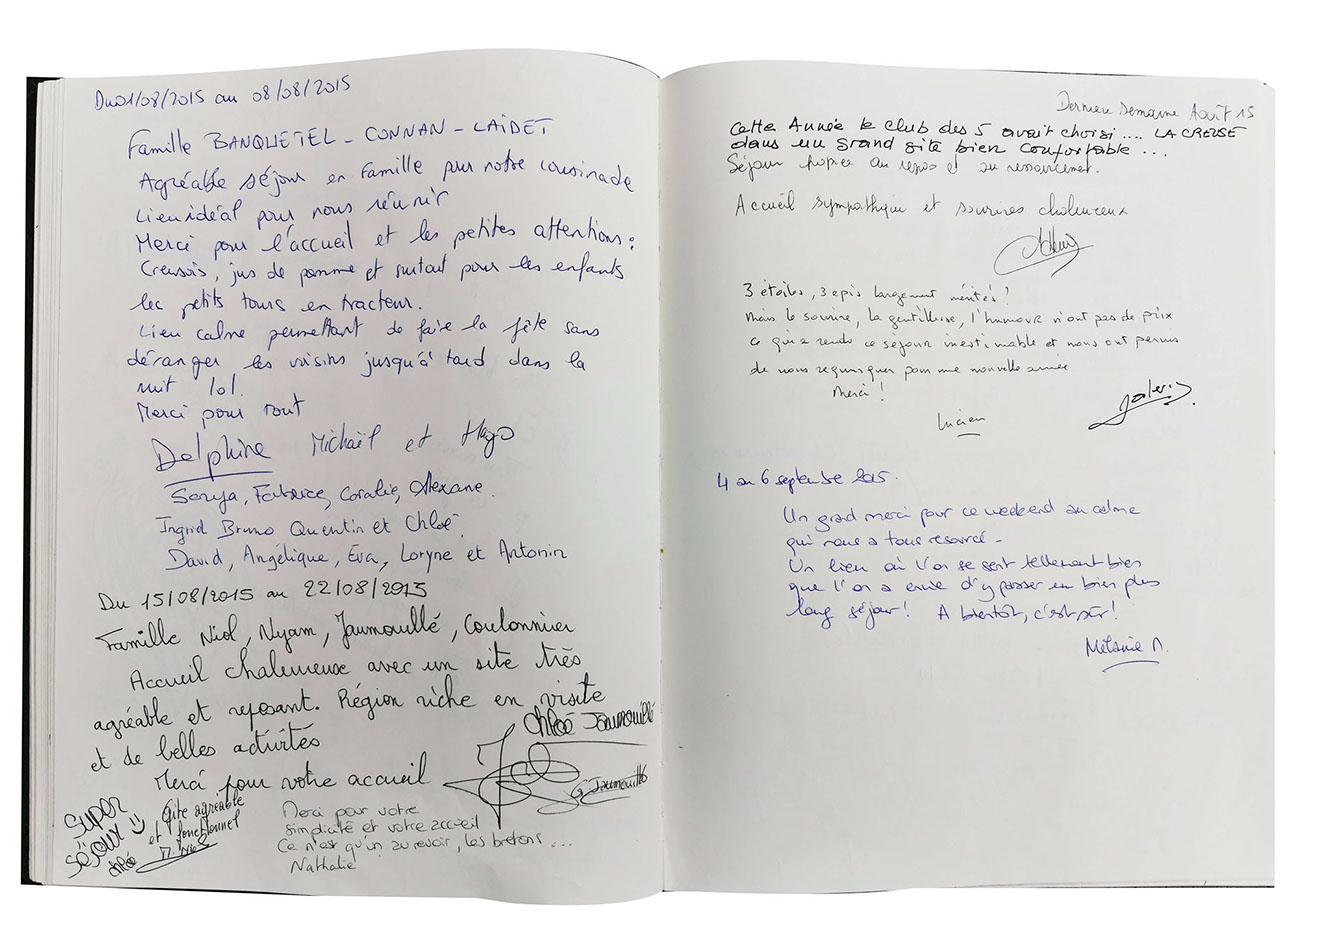 Du 01/08/2015 au 08/08/2015
Famille BANQUETEL - CONNAN - LAIDET
Agréable séjour en famille pour notre cousinade
Lieu idéal pour nous réunir
Merci pour l'accueil et les petites attentions :
Creusois, jus de pomme et surtout pour les enfants
les petits tours en tracteur.
Lieu calme permettant de faire la fête sans
déranger les voisins jusqu'à tard dans la
nuit lol.
Merci pour tout
Delphine Michaël et Hugo
Sonya, Fabrice, Coralie, Alexane.
Ingrid Bruno Quentin et Chloé.
David, Angélique, Eva, Loryne et Antonin
Du 15/08/2015 au 22/08/2015
Famille Niol, Nyam, Jaumouillé, Coulonnier
Accueil chaleureuse avec un site très
agréable et reposant. Région riche en visite
et de belles activités
Chloé Jaumouillé
Merci pour votre accueil
G Jaumouillé
Super
séjour
Chloé
Gite agréable
et fonctionnel
Merci pour votre
simplicité et votre accueil
Ce n'est qu'un au revoir, les bretons...
Nathalie
Dernière Semaine Août 15
Cette Année le club des 5 avait choisi .... LA CREUSE
dans un grand gite bien confortable ...
Séjour propice au repos et au ressourcement.
Accueil sympathique et sourires chaleureux
3 étoiles, 3 epis largement mérités !
Mais le sourire, la gentillesse, l'humour n'ont pas de prix
ce qui a rendu ce séjour inestimable et nous ont permis
de nous requinquer pour une nouvelle année
Merci !
Lucien
4 au 6 septembre 2015.
Un grand merci pour ce weekend au calme
qui nous a tous resourcé -
Un lieu où l'on se sent tellement bien
que l'on a envie d'y passer un bien plus
long séjour ! A bientôt, c'est sûr !
Mélanie M.